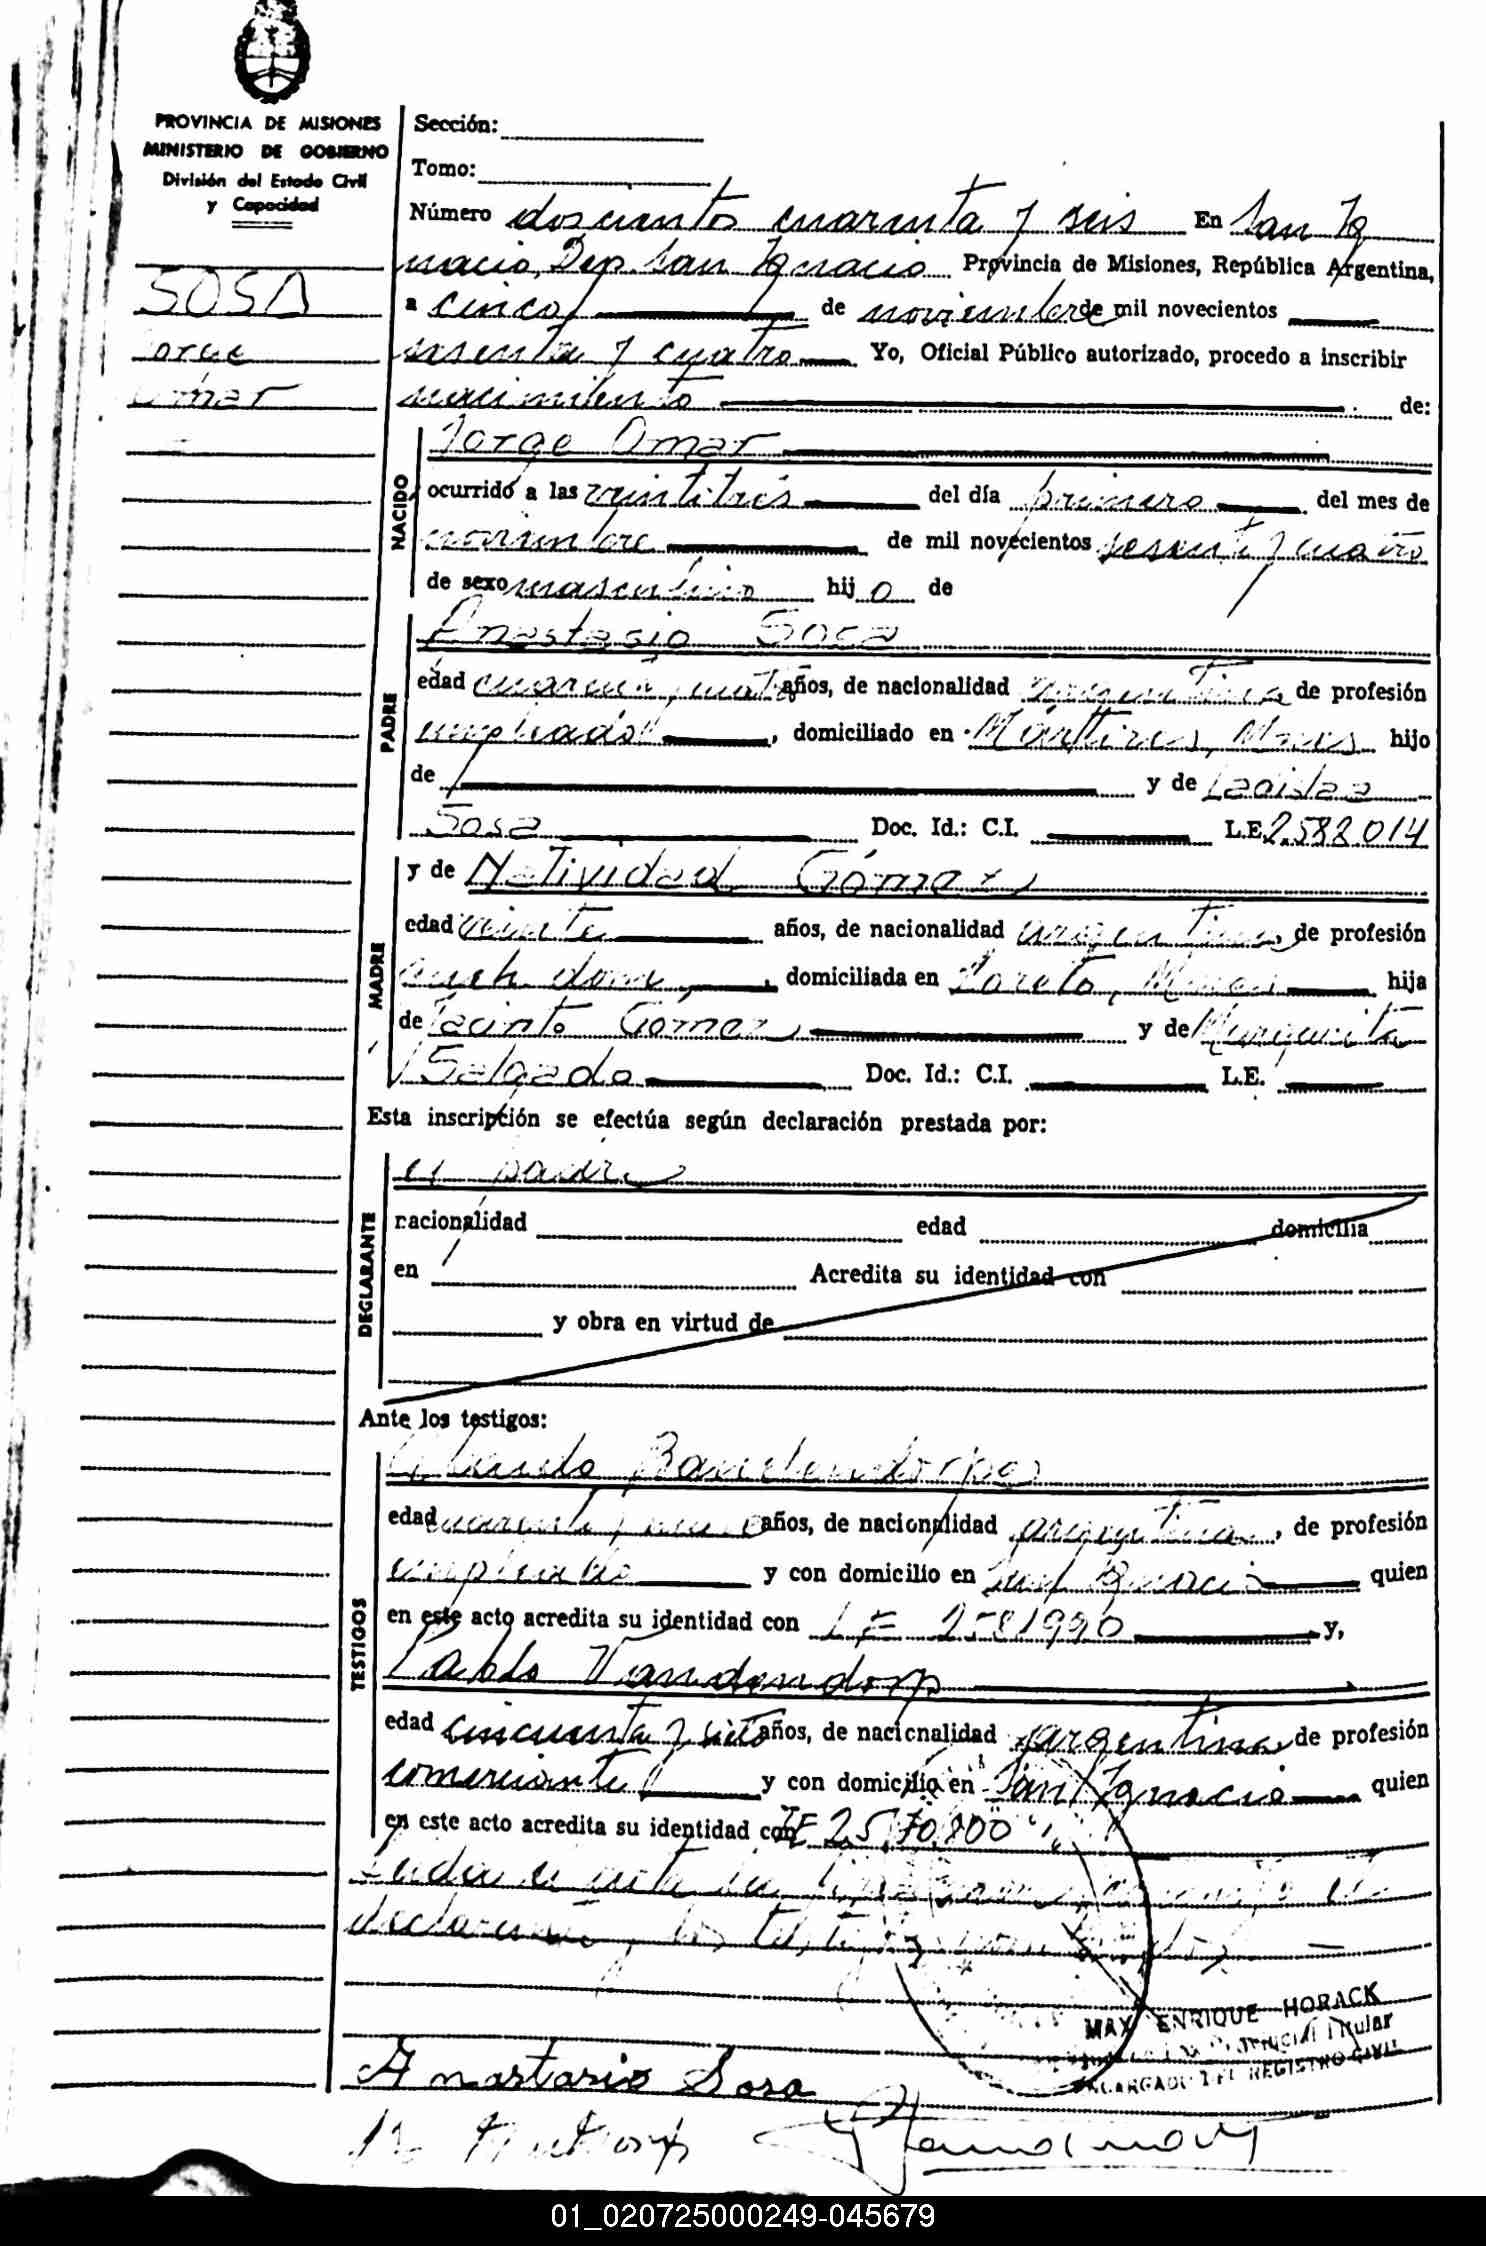 PROVINCIA DE MISIONES
MINISTERIO DE GOBIERNO
División del Estado Civil
y Capacidad
SOSA
Jorge
Omar
Sección:
Tomo:
Número doscientos cuarenta y seis En San Ig
nacio, Dep. San Ignacio Provincia de Misiones, República Argentina,
a cinco de noviembre de mil novecientos
sesenta y cuatro Yo, Oficial Público autorizado, procedo a inscribir
nacimiento de:
NACIDO
Jorge Omar
ocurrido a las veintitrés del día primero del mes de
noviembre de mil novecientos sesenta y cuatro
de sexo masculino hijo de
PADRE
Anastasio Sosa
edad cuarenta y cuatro años, de nacionalidad argentina, de profesión
empleado, domiciliado en Mártires, Mnes hijo
de y de Ladislaa
Sosa Doc. Id.: C.I. L.E. 2.588.014
MADRE
y de Natividad Gómez
edad veinte años, de nacionalidad argentina, de profesión
queh. dom, domiciliada en Loreto, Mnes hija
de Jacinto Gomez y de Margarita
Salgado Doc. Id.: C.I. L.E.
Esta inscripción se efectúa según declaración prestada por:
DECLARANTE
el padre
nacionalidad edad domicilia
en Acredita su identidad con
y obra en virtud de
Ante los testigos:
TESTIGOS
edad cuarenta y años, de nacionalidad argentina, de profesión
empleado y con domicilio en San Ignacio quien
en este acto acredita su identidad con L E 2581990 y,
Pablo Vandendorp
edad cincuenta y siete años, de nacionalidad argentina, de profesión
comerciante y con domicilio en San Ignacio quien
en este acto acredita su identidad con LE 2.570.800
Leida el acta la
declarante y los testigos
MAX ENRIQUE HORACK
Titular
ENCARGADO DEL REGISTRO CIVIL
Anastasio Sosa
01_020725000249-045679